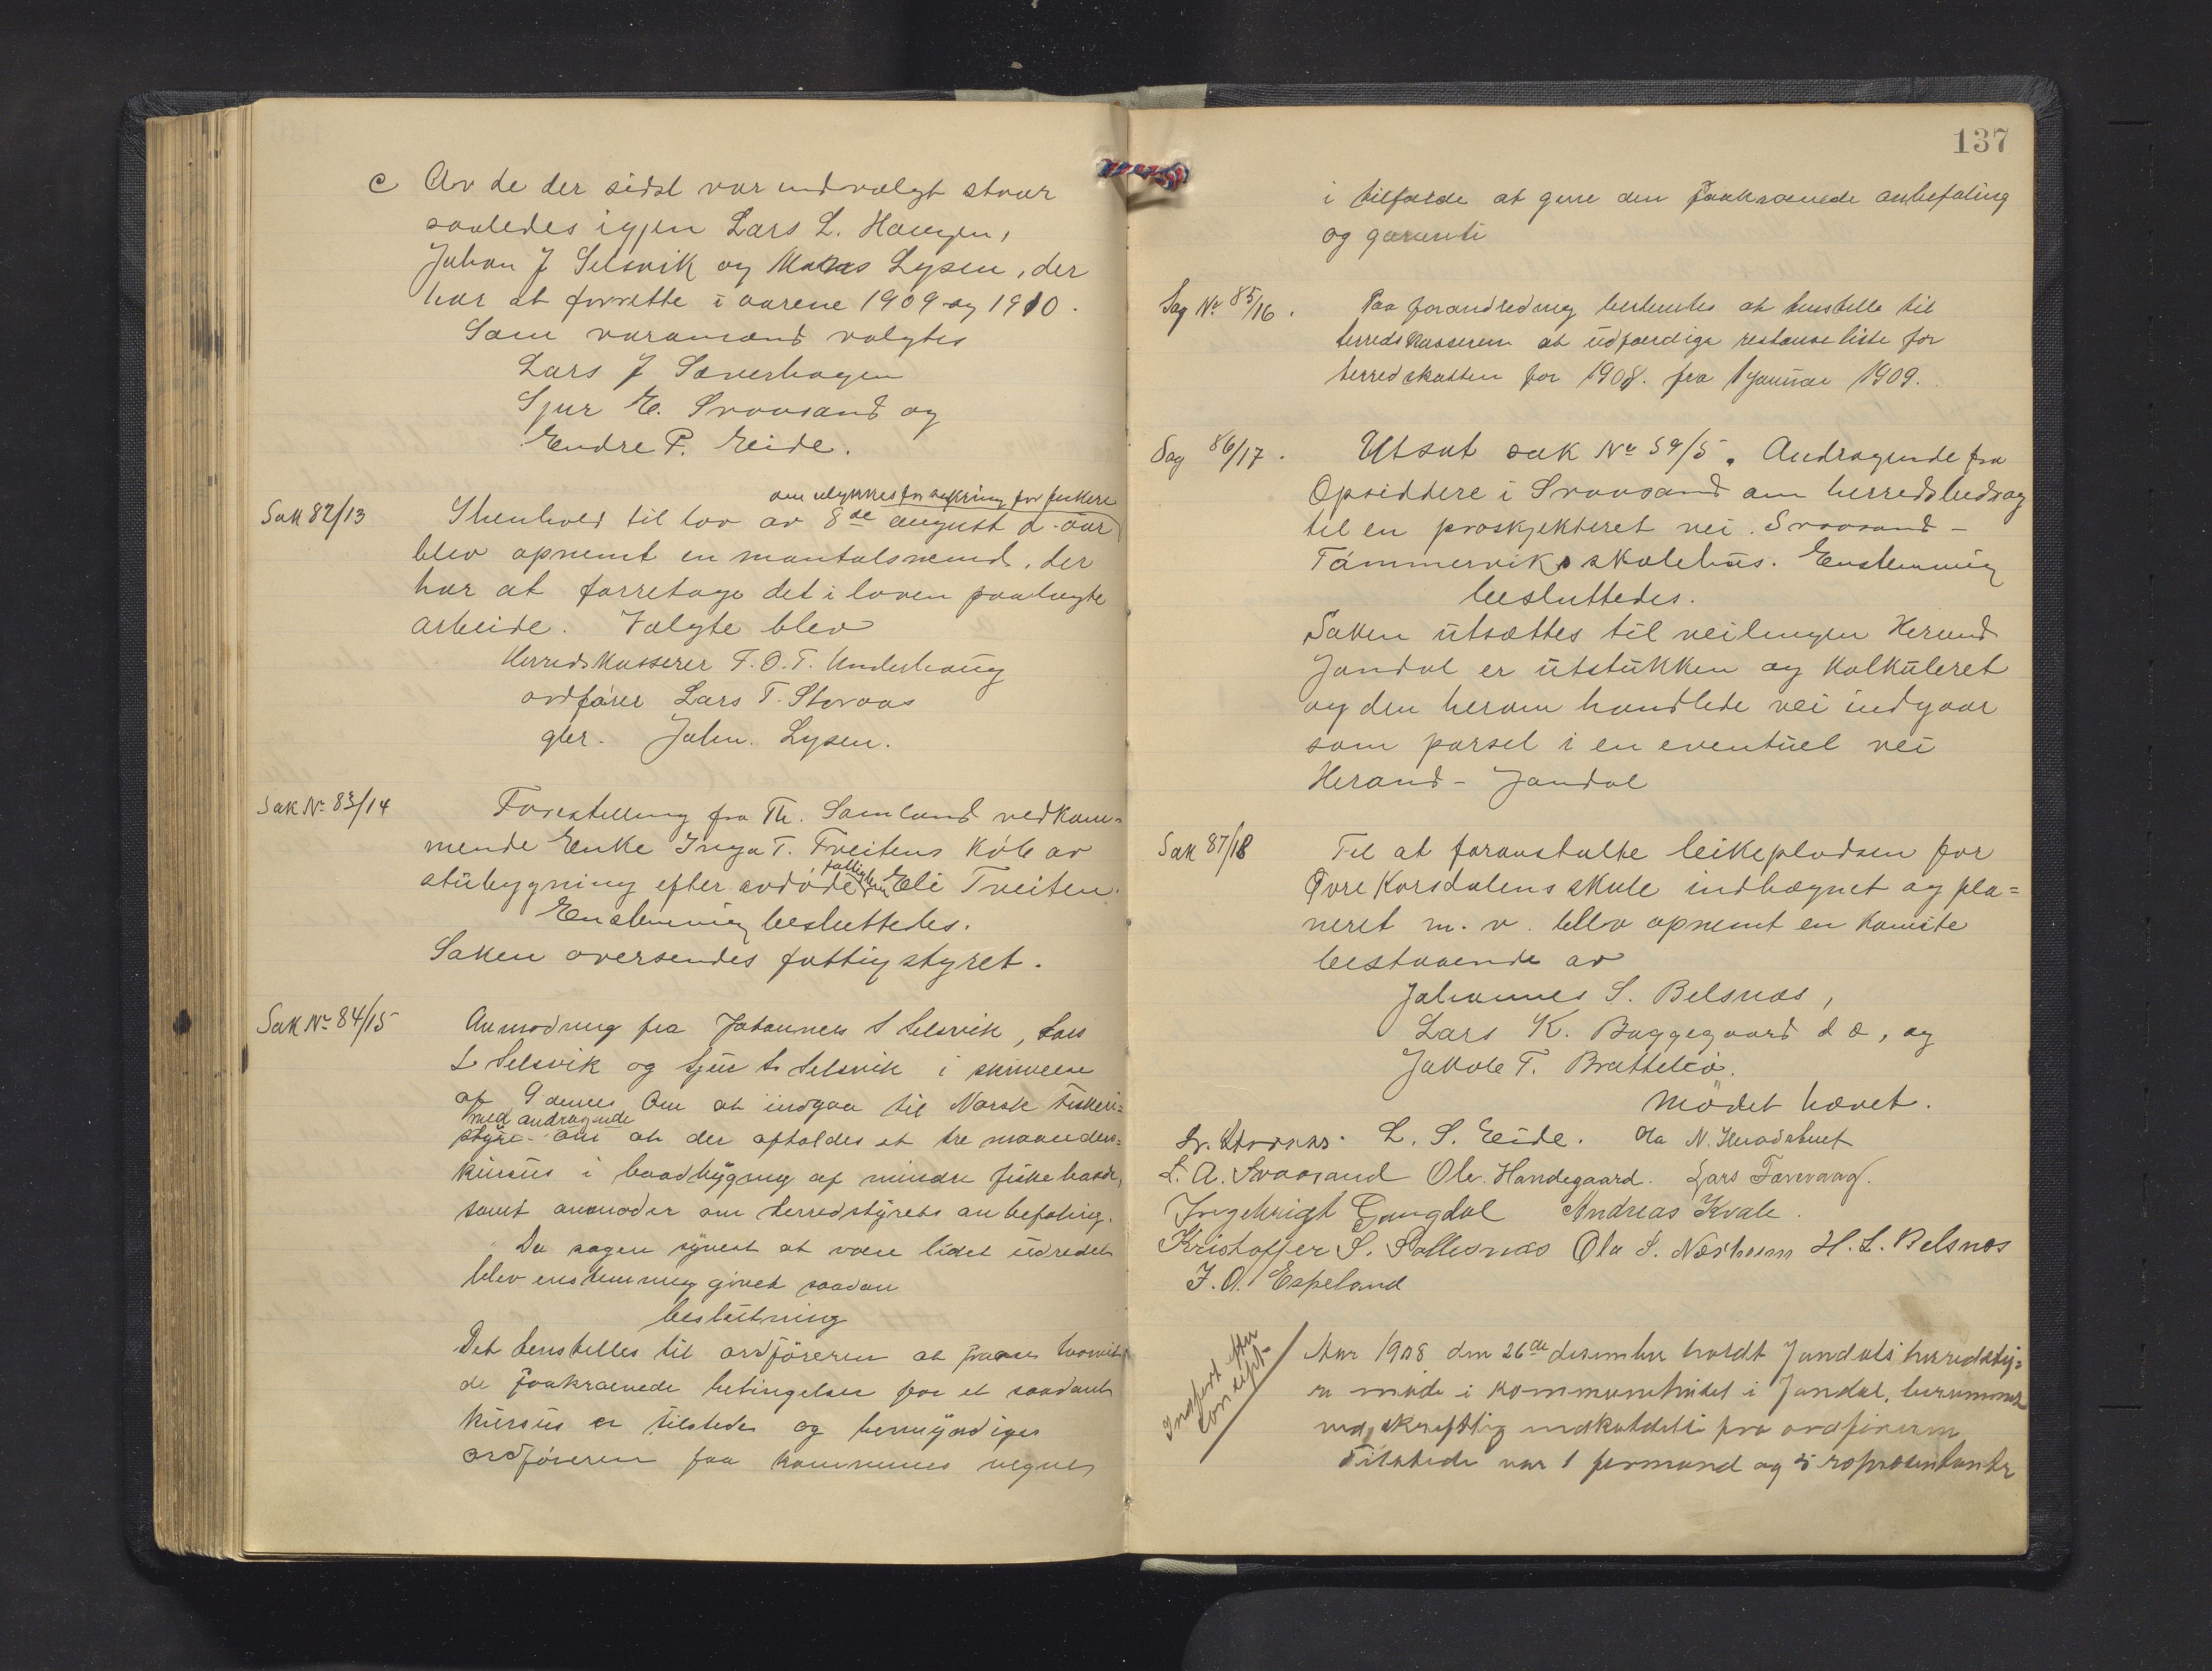 c Av de der sidst var utvalgt staar
saaledes igjen Lars L. Haugen,
Johan J Selsvik og Mons Lysen, der
har at forrette i aarene 1909 og 1910.
Som varamænd valgtes
Lars J Sæverhagen
Sjur E. Svaasand og
Endre P. Eide.
Sak 82/13
om ulykkesforsikring for fiskere
I henhold til lov av 8de august d. aar
blev opnemt en mantalsnemd, der
har at forretage det i loven paalagte
arbeide. Valgte blev
Herredskasserer T. O. T. Underhaug
ordfører Lars T. Storaas
gbr. Johs. Lysen.
Sak No 83/14
Forestilling fra Th. Samland vedkom-
mende Enke Inga T. Tveitens kjøb av
stubygning efter avdøde fattiglem Eli Tveiten.
Enstemmig besluttedes.
Saken oversendes fattigstyret.
Sak No 84/15
Anmodning fra Johannes S Selsvik, Lars
L Selsvik og Sjur L. Selsvik i skrivelse
af 9 dennes om at indgaa til Norsk Fiskeri-
styre med andragende om at der afholdes et tre maaneders-
kursus i baadbygning af mindre fiskebaade,
samt anmoder om herredstyrets anbefaling.
Da sagen synest at være lidet udredet
blev enstemmig givet saadan
beslutning
Det henstilles til ordføreren at paase hvorvidt
de paakrævede betingelser for et saadant
kursus er tilstede og bemyndiges
ordføreren paa kommunens vegne
137
i tilfælde at give den paakrævede anbefaling
og garanti
Sag No 85/16.
Paa foranledning bestemtes at henstille til
herredskasseren at udfærdige restanseliste for
herredskatten for 1908. fra 1 januar 1909.
Sag 86/17.
Utsat sak No 59/5. Andragende fra
Opsiddere i Svaasand om herredsbidrag
til en proskjekteret vei Svaasand -
Tømmervik skolehus. Enstemmig
besluttedes.
Saken utsættes til veilengen Herand
Jondal er utstukken og kalkuleret
og den herom handlede vei indgaar
som parsel i en eventuel vei
Herand - Jondal
Sak 87/18
Til at foranstalte leikepladsen for
Øvre Korsdalens skule indhægnet og pla-
neret m. v. blev opnemt en komite
bestaaende av
Johannes S. Belsnæs,
Lars K. Byggegaard d æ, og
Jakob T. Brattebø.
Mødet hævet.
Lr. Storaas. L. S. Eide. Ola N.
L. A. Svaasand Ole Handegaard. Lars Torvaag.
Ingebrigt Gangdal Andreas Kvale.
Kristoffer S. Sollesnæs Ola S. Næsheim H. L. Belsnes
J. O. Espeland
Indført efter
concept.
Aar 1908 den 26de desember holdt Jondals herredsty-
re møde i kommunehuset i Jondal, berammet
ved skriftlig indkaldelse fra ordføreren
Tilstede var 1 formand og 5 repræsentanter